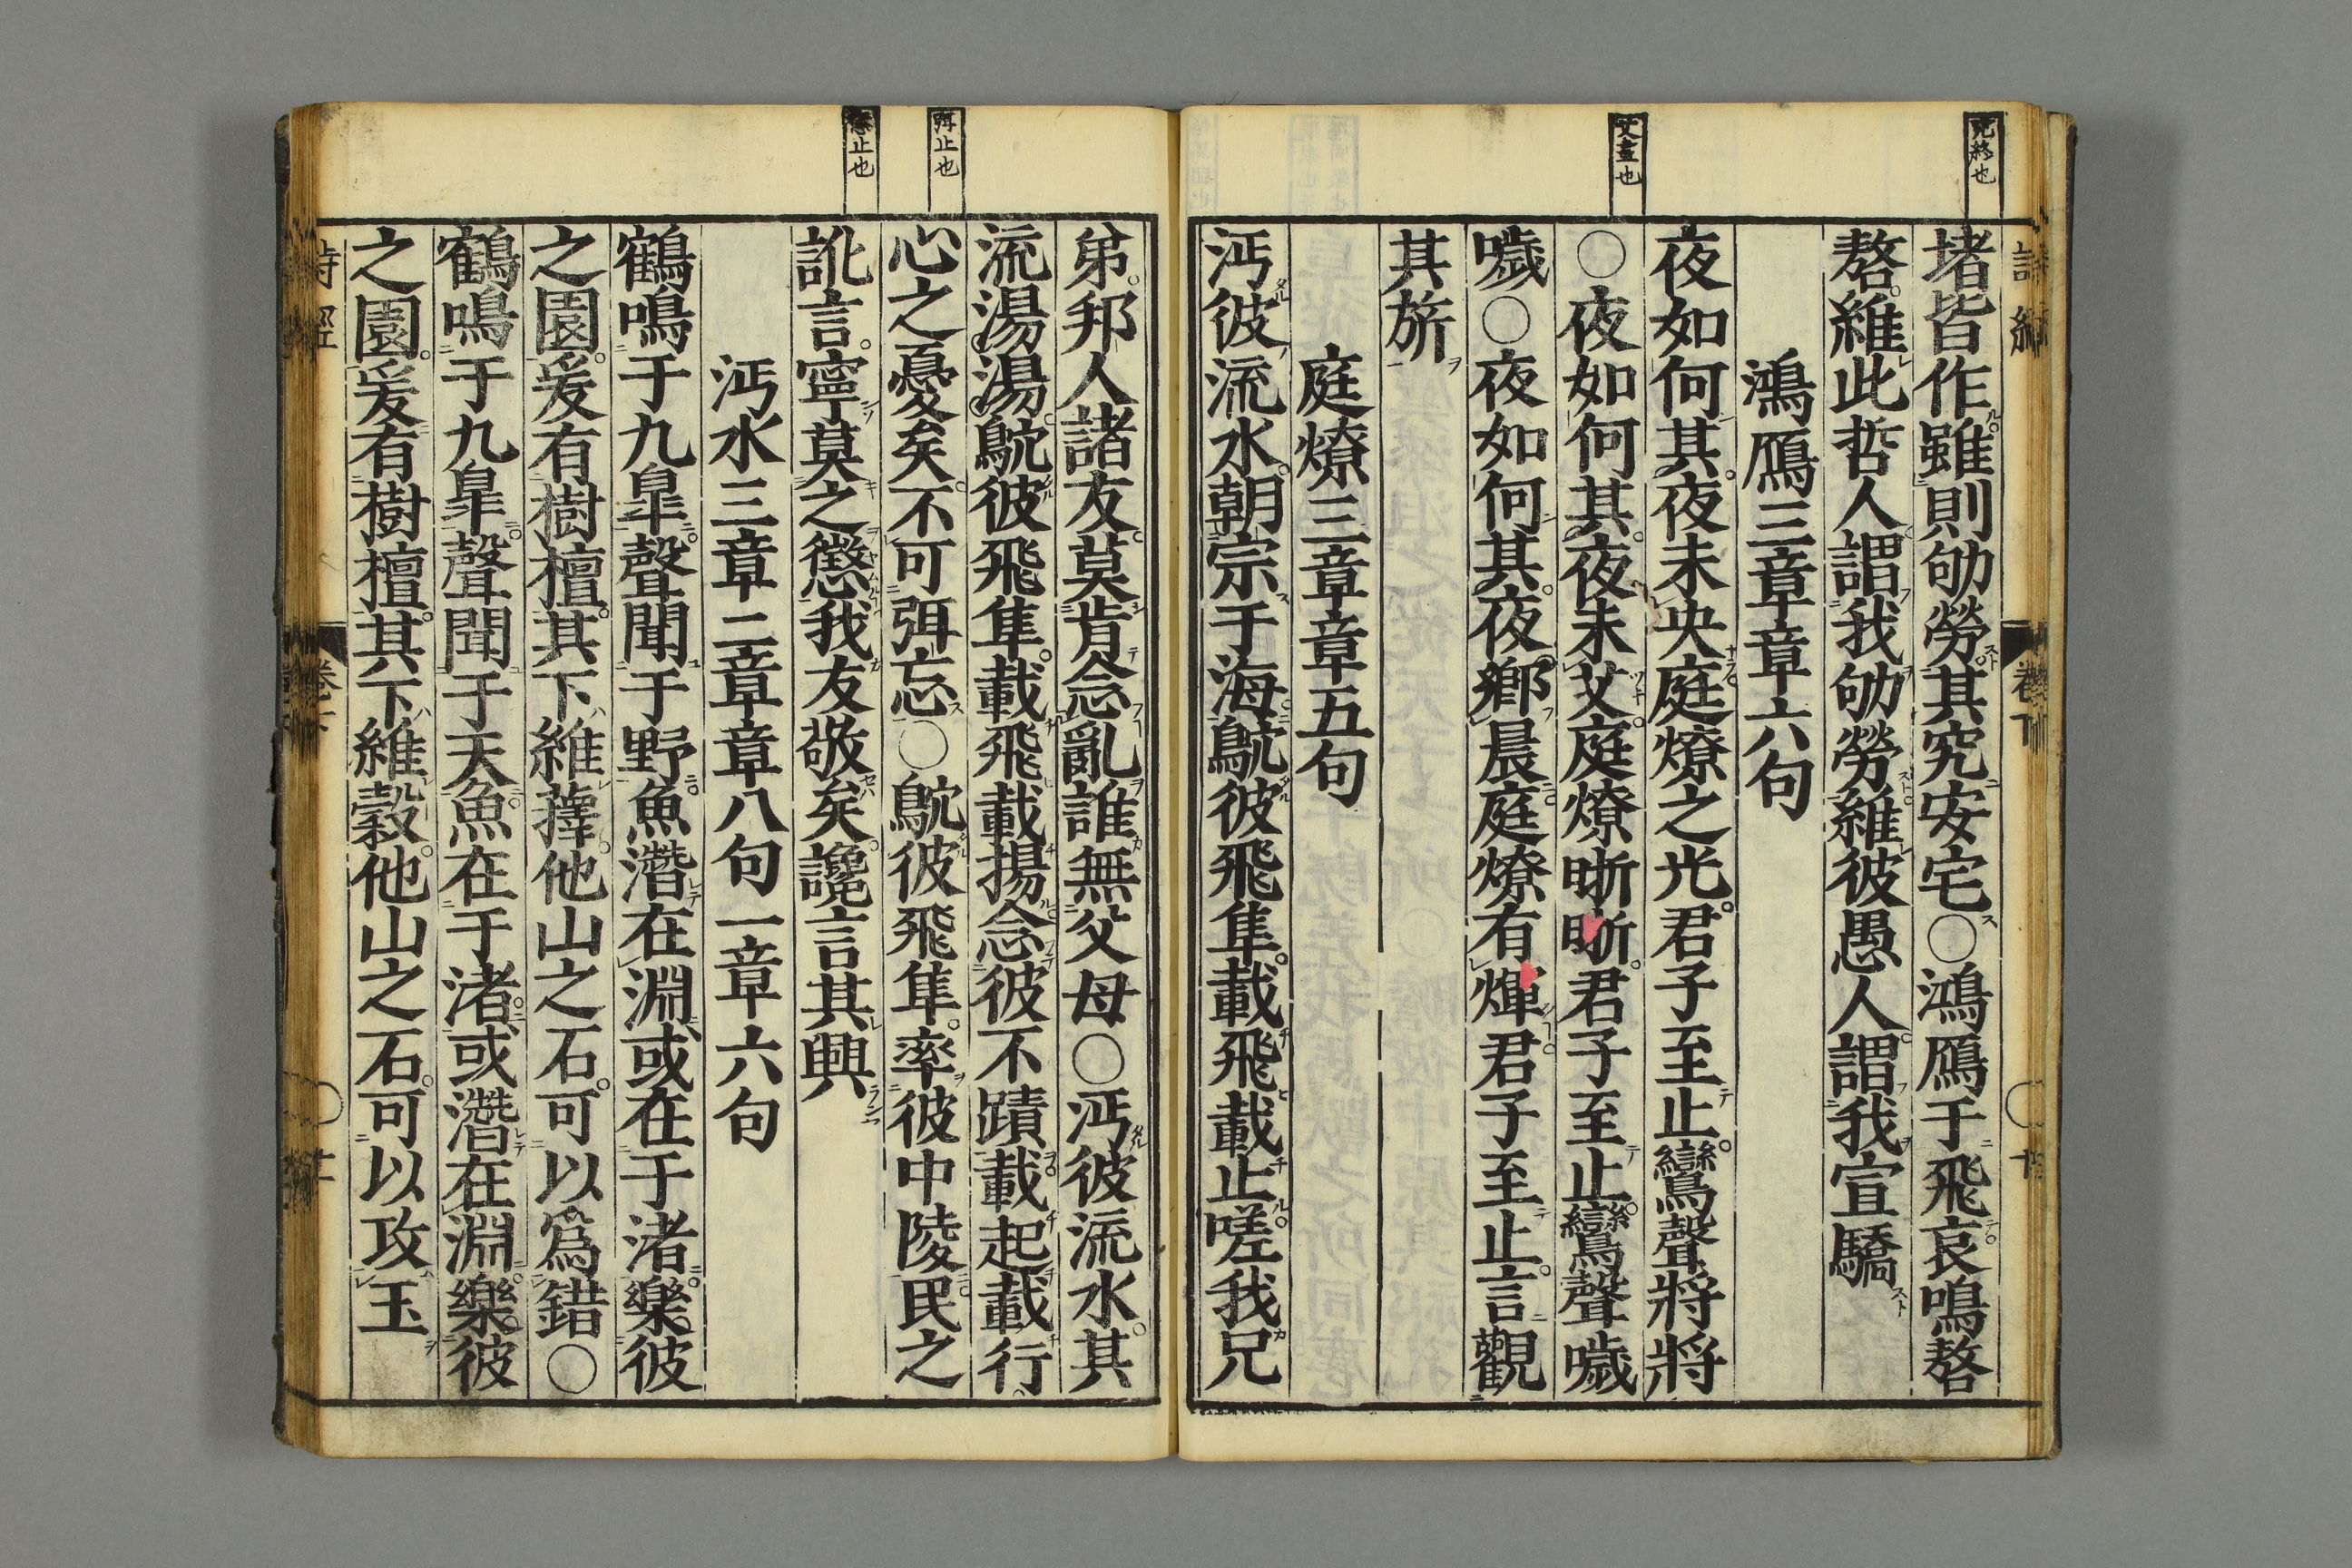 究終也
艾盡也
堵皆作雖則劬勞其究安宅○鴻鴈于飛哀鳴嗸
嗸維此哲人謂我劬勞維彼愚人謂我宣驕
鴻鴈三章章六句
夜如何其夜未央庭燎之光君子至止鸞聲將將
○夜如何其夜未艾庭燎晣晣君子至止鸞聲噦
噦○夜如何其夜鄉晨庭燎有煇君子至止言觀
其旂
庭燎三章章五句
沔彼流水朝宗于海鴥彼飛隼載飛載止嗟我兄
弭止也
懲止也
弟邦人諸友莫肯念亂誰無父母○沔彼流水其
流湯湯鴥彼飛隼載飛載揚念彼不蹟載起載行
心之憂矣不可弭忘○鴥彼飛隼率彼中陵民之
訛言寧莫之懲我友敬矣讒言其興
沔水三章二章章八句一章六句
鶴鳴于九皐聲聞于野魚潛在淵或在于渚樂彼
之園爰有樹檀其下維蘀他山之石可以爲錯○
鶴鳴于九皐聲聞于天魚在于渚或潛在淵樂彼
之園爰有樹檀其下維榖他山之石可以攻玉